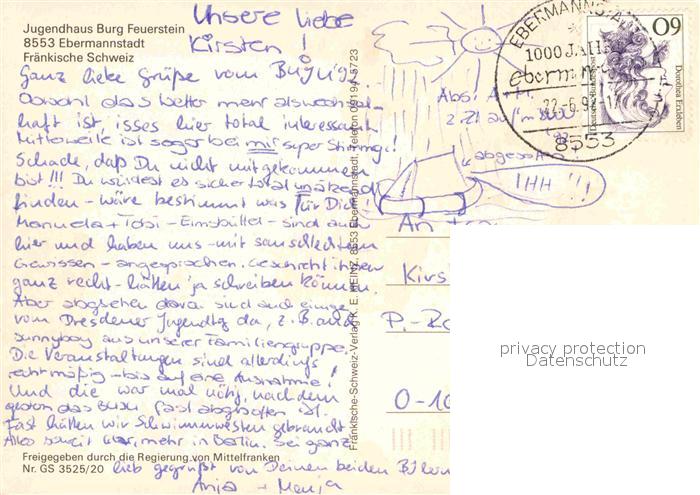 Jugendhaus Burg Feuerstein
8553 Ebermannstadt
Fränkische Schweiz
Unsere liebe
Kirsten!
Ganz liebe Grüße vom
Obwohl das Wetter mehr als wechsel-
haft ist, ist es hier total interessant.
Mittlerweile ist sogar bei mir super Stimmung!
Schade, daß Du nicht mitgekommen
bist!!! Du würdest es sicher total
finden - wäre bestimmt was für Dich!
Manuela + Tobi - Eimsbüttel - sind auch
hier und haben uns - mit sau schlechtem
Gewissen - angesprochen. Geschieht ihnen
ganz recht - hätten ja schreiben können.
Aber abgsehen davon sind auch einige
vom Dresdener Jugendtg da, z.B. auch
sunnyboy aus unserer Familiengruppe.
Die Veranstaltungen sind allerdings
rechtmäßig - bis auf eine Ausnahme!
Und die war mal nötig, nachdem
gestern das fast abgsoffen ist.
Fast hätten wir Schwimmwesten gebraucht.
Alles soweit mehr in Berlin. Sei ganz
lieb gegrüßt von Deinen beiden
Anja + Manja
Freigegeben durch die Regierung von Mittelfranken
Nr. GS 3525/20
Fränkische-Schweiz-Verlag K. E. HEINZ, 8553 Ebermannstadt, Telefon 09194-5723
Abs: A+M
z.Zt. auf'm
abgesoffen
IHH!!!
EBERMANNSTADT
1000 JAHRE
22.-6.9
8553
60
Deutsche Bundespost
Dorothea Erxleben
An
Kirs
P.-Z
O-10
privacy protection
Datenschutz